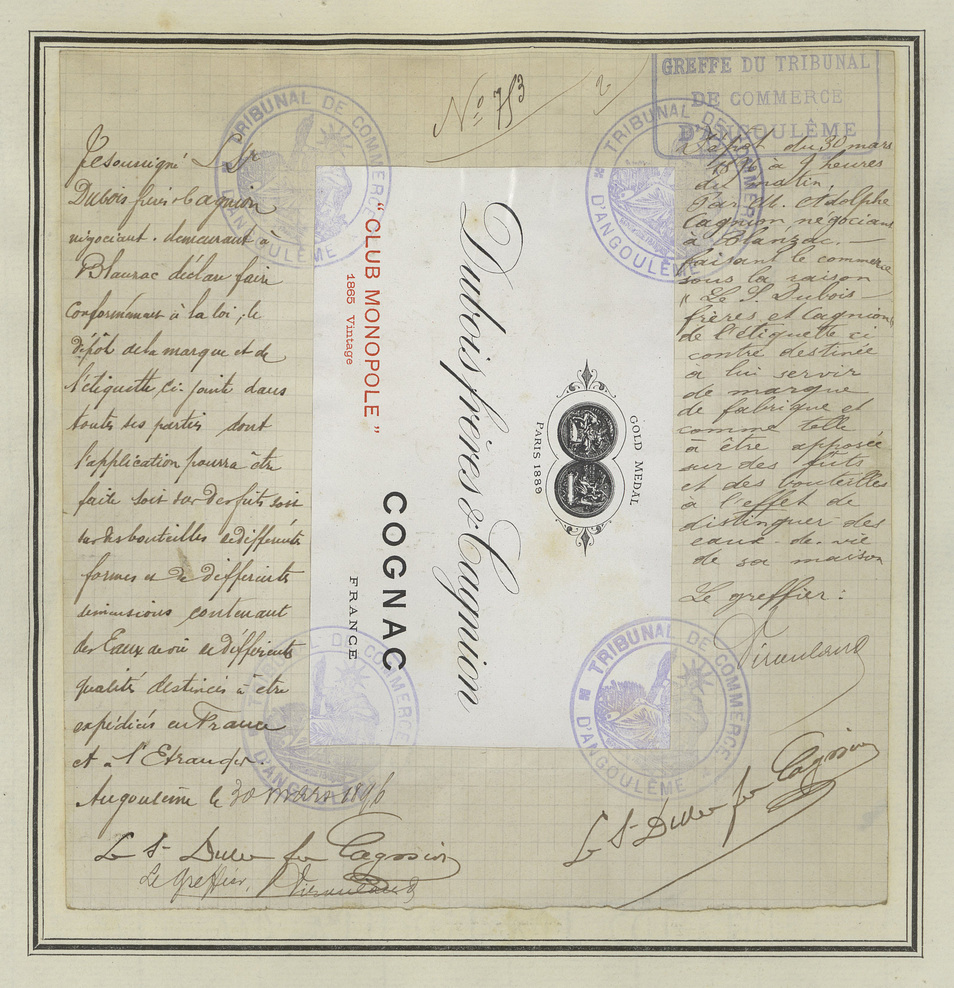 No 753
2
GREFFE DU TRIBUNAL
DE COMMERCE
D'ANGOULÊME
Je soussigné Le Sr
Dubois frères & Cagnion
négociant. demeurant à
Blanzac déclare faire
conformément à la loi ; le
dépôt de la marque et de
l'étiquette Ci-jointe dans
toutes ses parties dont
l'application pourra être
faite soit sur des futs soit
sur des bouteilles de différents
formes et de différents
dimensions contenant
des Eaux de vie de différents
qualités destinées à être
expédiées en France
et à l'Etranger.
Angoulême le 30 mars 1896
Le Sr Dubois fres Cagnion
Le Greffier,
"CLUB MONOPOLE"
1865 Vintage
COGNAC
FRANCE
Dubois frères & Cagnion
GOLD MEDAL
PARIS 1889
Dépôt du 30 mars
1896 à 9 heures
du matin,
Par M. Adolphe
Cagnion négociant
à Blanzac.—
faisant le commerce
sous la raison
" Le S. Dubois
frères et Cagnion"
de l'étiquette ci
contre destinée
à lui servir
de marque
de fabrique et
comme telle
à être apposée
sur des fûts
et des bouteilles
à l'effet de
distinguer des
eaux-de-vie
de sa maison
Le greffier :
Le Sr Dubois fres Cagnion
TRIBUNAL DE COMMERCE
D'ANGOULÊME
TRIBUNAL DE COMMERCE
D'ANGOULÊME
TRIBUNAL DE COMMERCE
D'ANGOULÊME
TRIBUNAL DE COMMERCE
D'ANGOULÊME